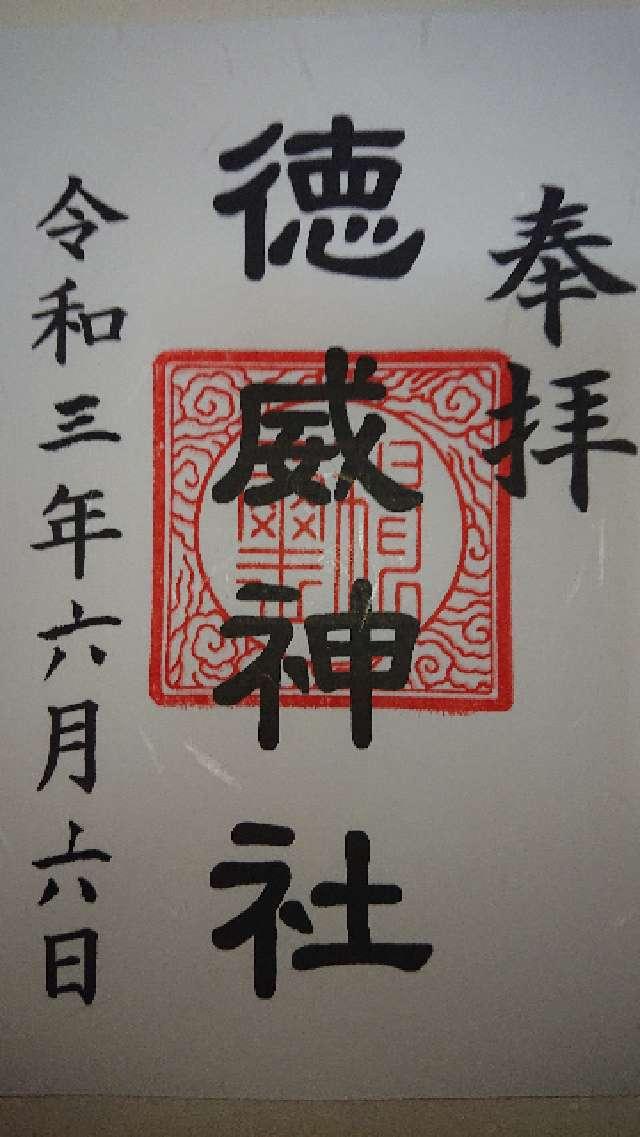 奉拝
徳威神社
令和三年六月六日